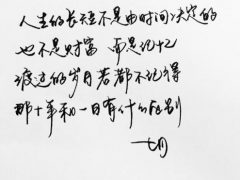 人生的长短不是由时间决定的
也不是财富 而是记忆
渡过的岁月若都不记得
那十年和一日有什么区别
七月